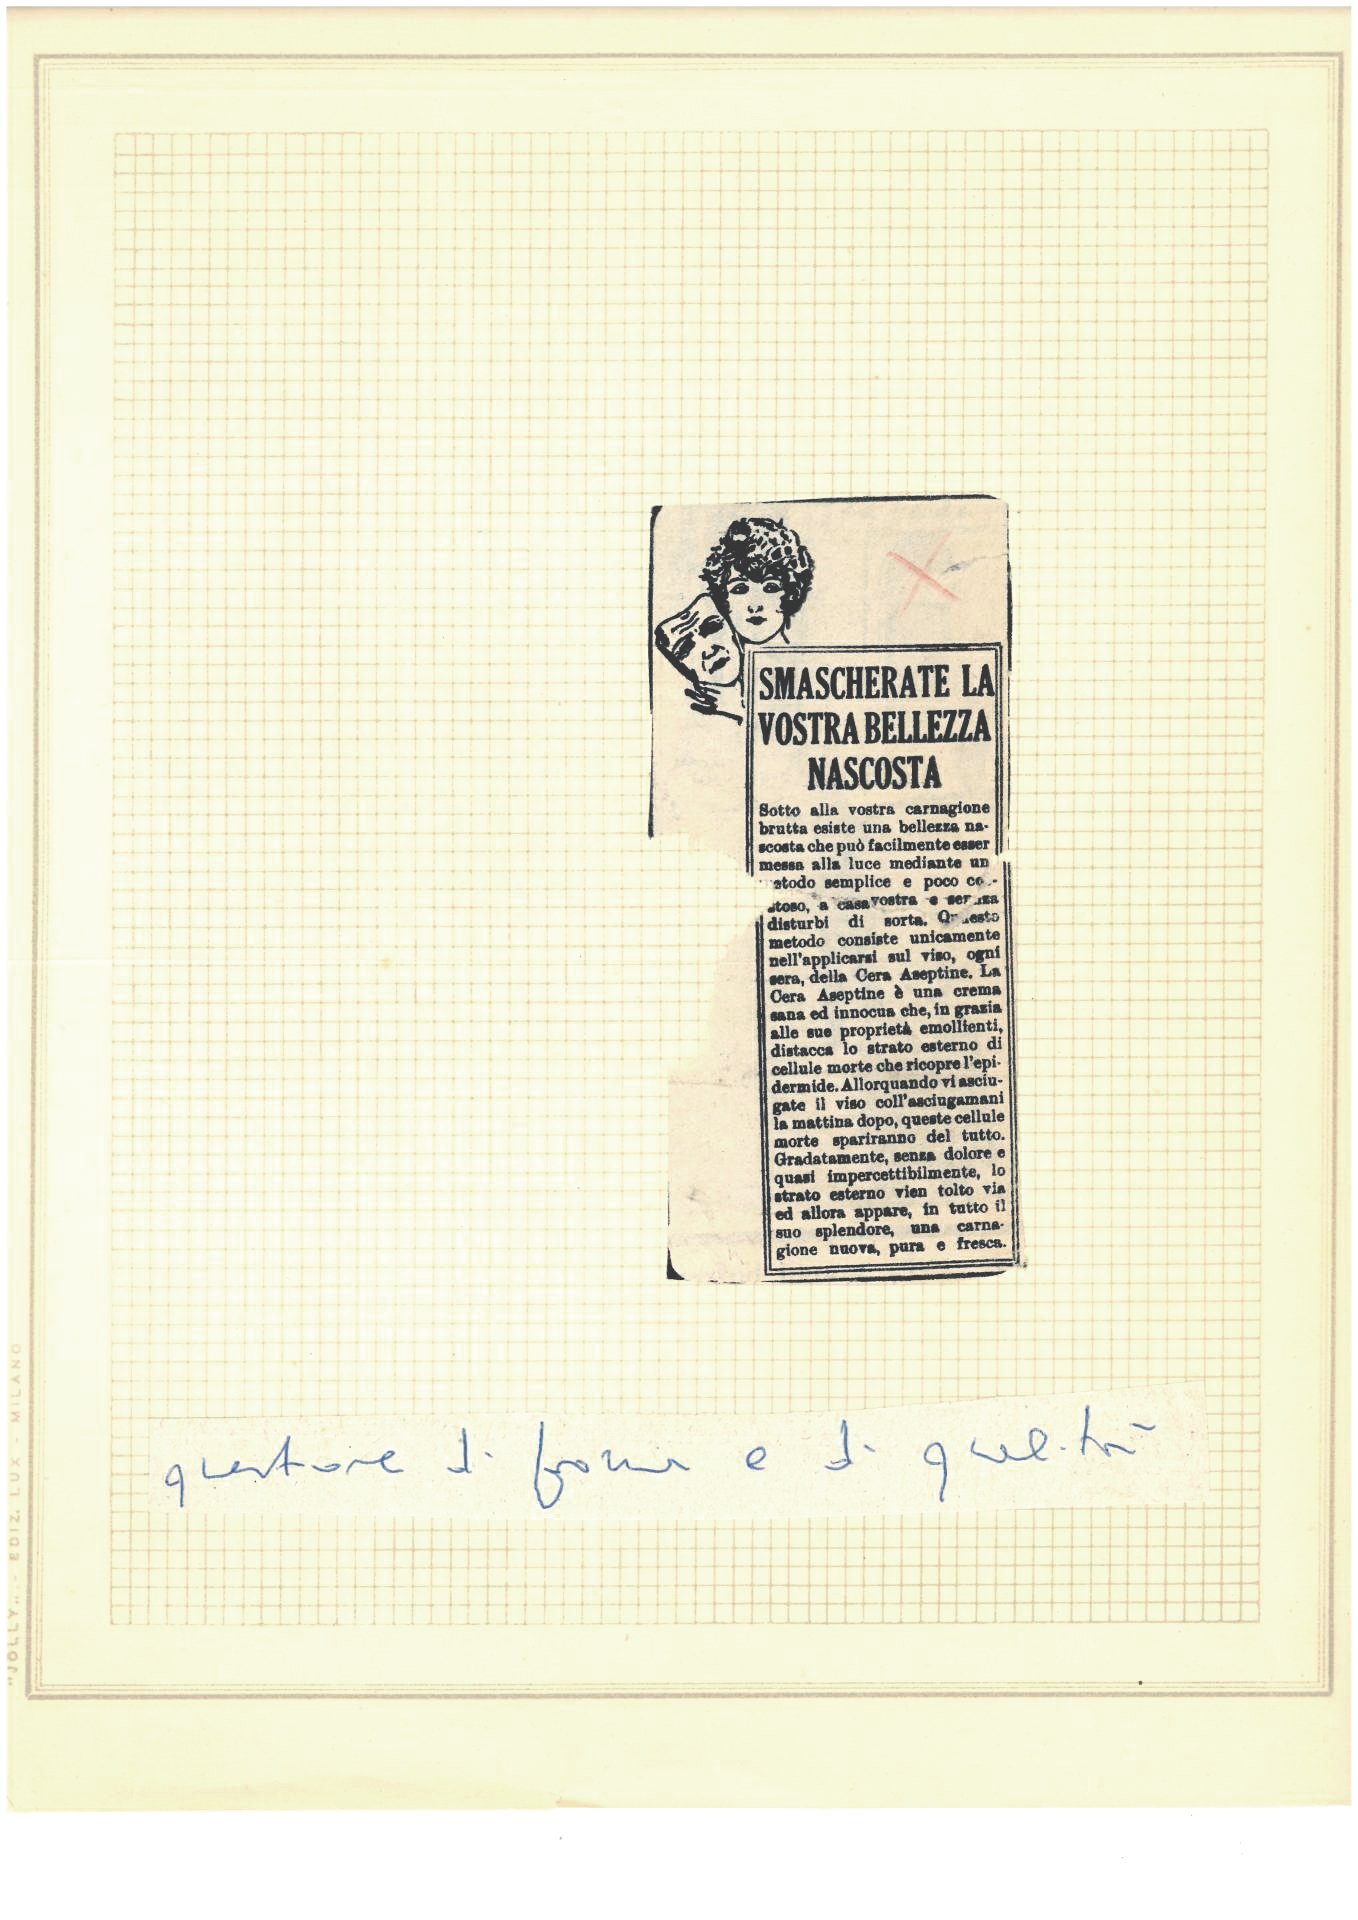 SMASCHERATE LA
VOSTRA BELLEZZA
NASCOSTA
Sotto alla vostra carnagione
brutta esiste una bellezza na-
scosta che può facilmente esser
messa alla luce mediante un
etodo semplice e poco co-
stoso, a casa vostra e senza
disturbi di sorta. Questo
metodo consiste unicamente
nell'applicarsi sul viso, ogni
sera, della Cera Aseptine. La
Cera Aseptine è una crema
sana ed innocua che, in grazia
alle sue proprietà emollienti,
distacca lo strato esterno di
cellule morte che ricopre l'epi-
dermide. Allorquando vi asciu-
gate il viso coll'asciugamani
la mattina dopo, queste cellule
morte spariranno del tutto.
Gradatamente, senza dolore e
quasi impercettibilmente, lo
strato esterno vien tolto via
ed allora appare, in tutto il
suo splendore, una carna-
gione nuova, pura e fresca.
questione di forma e di qualità
"JOLLY„ - EDIZ. LUX - MILANO